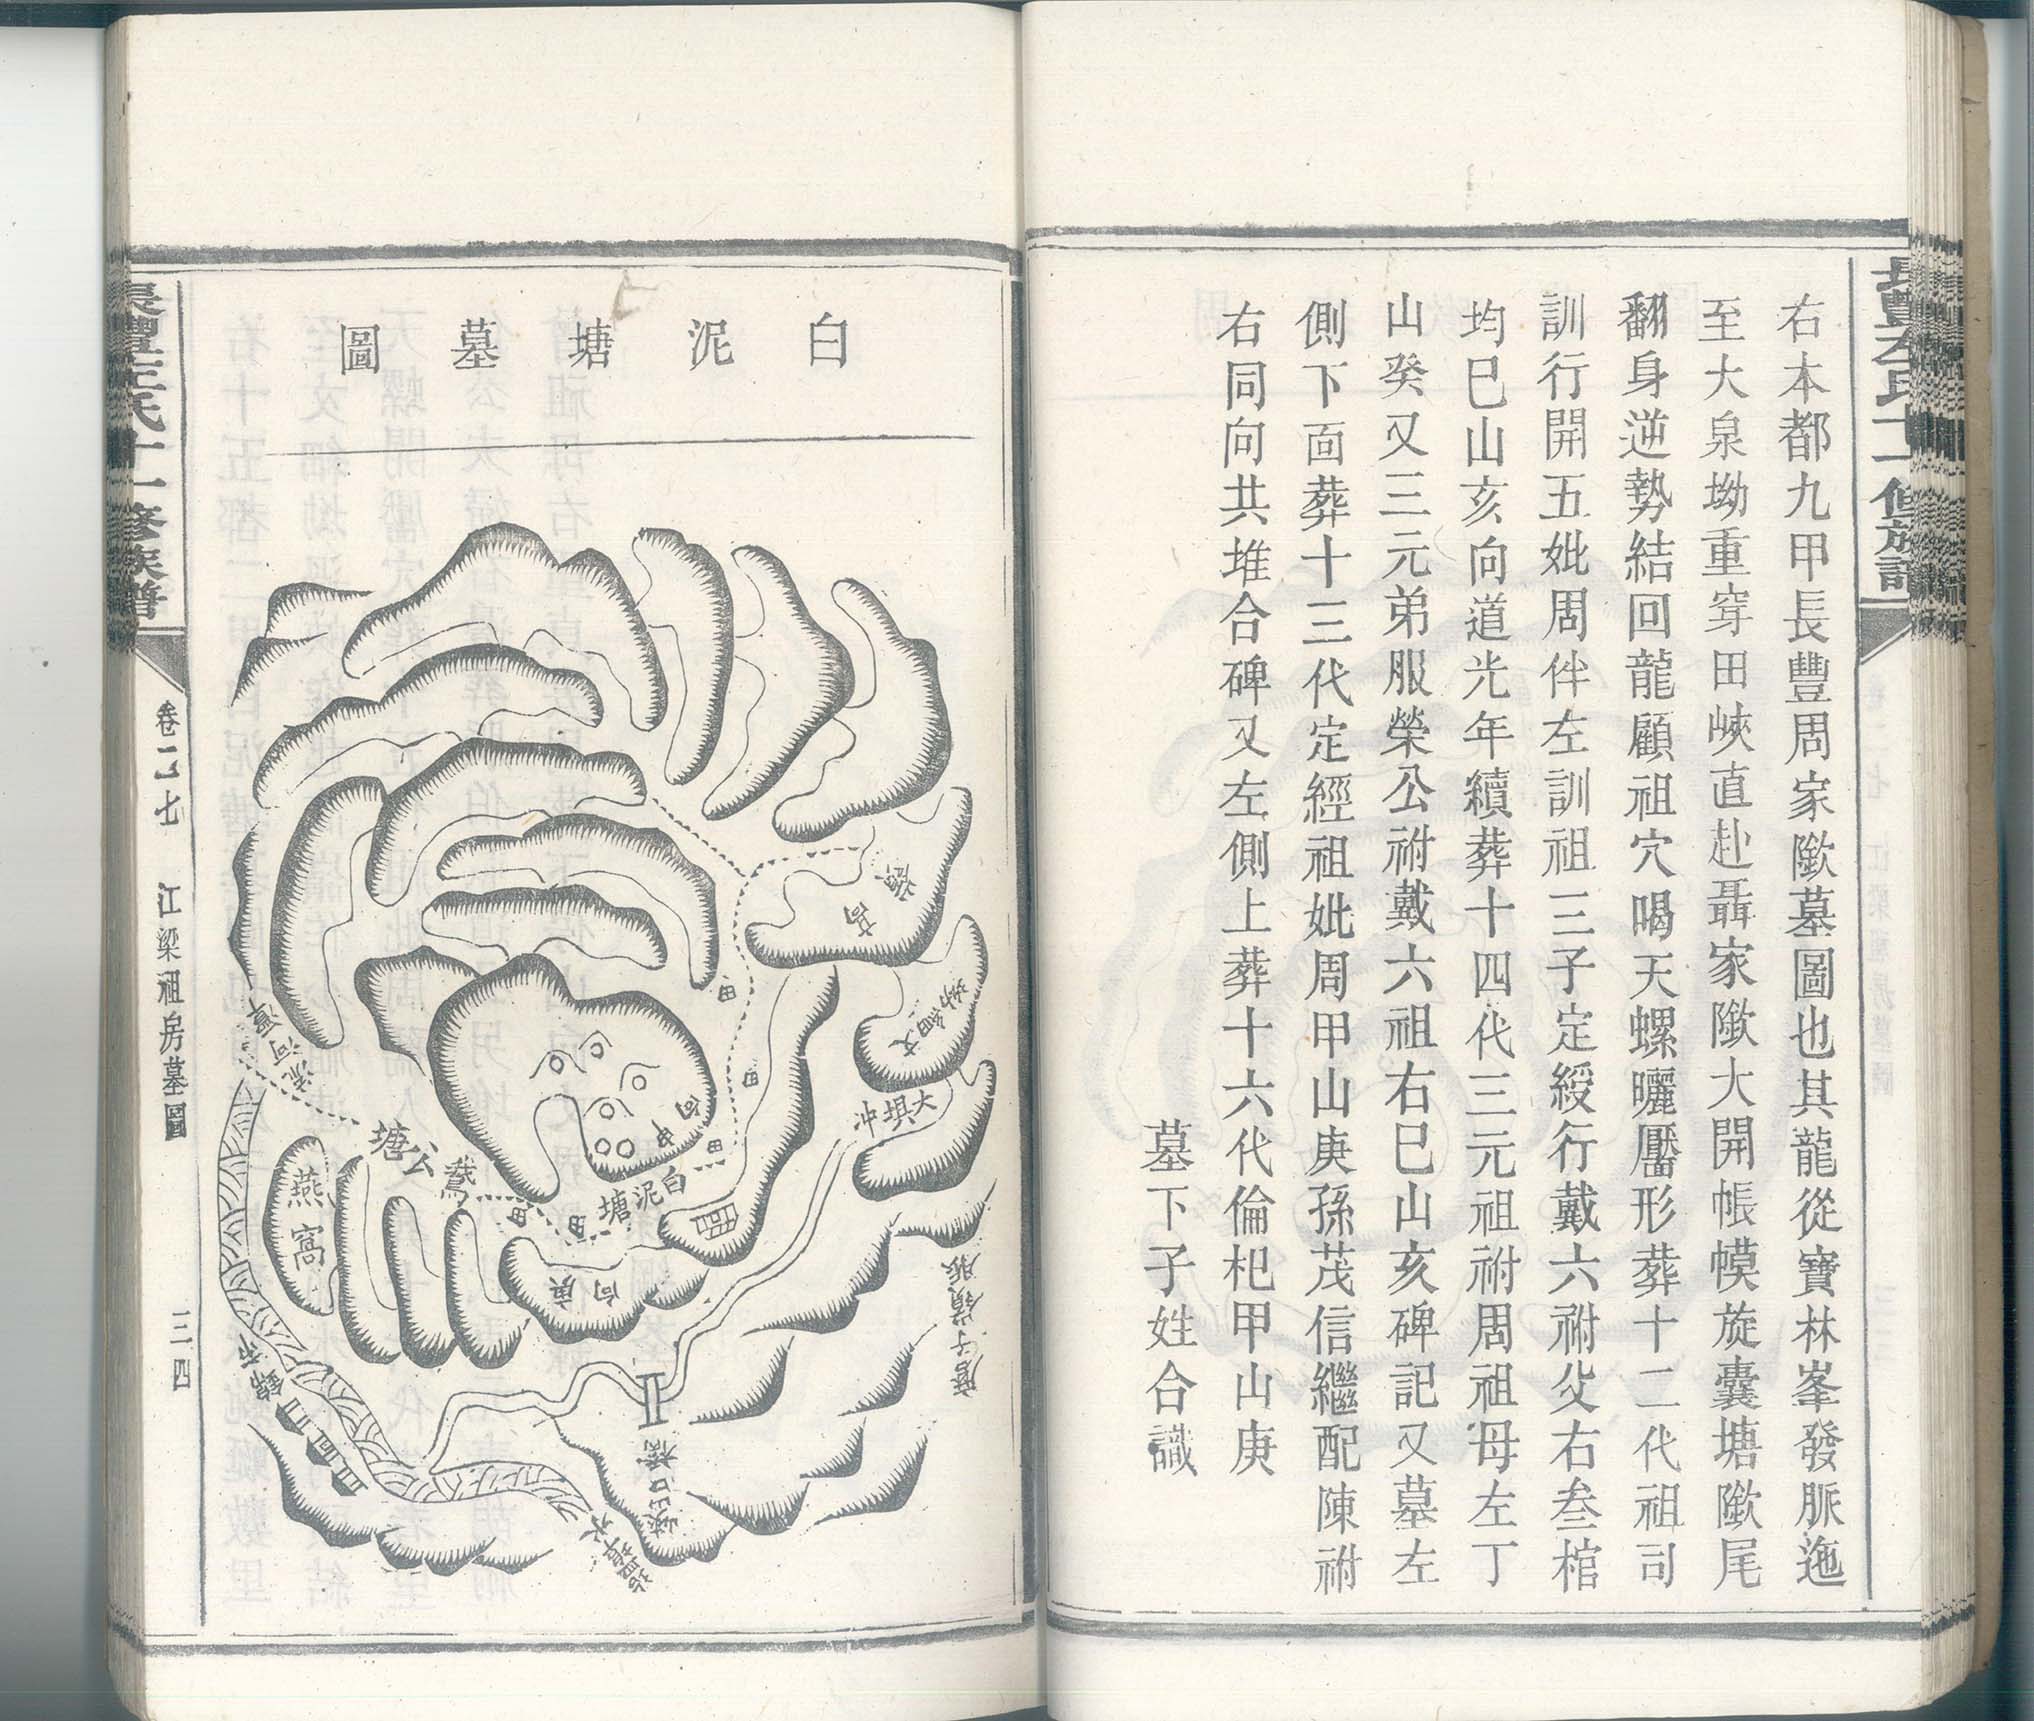 右本都九甲長豐周家隞墓圖也其龍從寶林峯發脈迤
至大泉坳重穿田峽直赴聶家隞大開帳幙旋囊塘隞尾
翻身逆勢結回龍顧祖穴喝天螺曬靨形葬十二代祖司
訓行開五妣周伴左訓祖三子定綬行戴六祔父右叁棺
均巳山亥向道光年續葬十四代三元祖祔周祖母左丁
山癸又三元弟服榮公祔戴六祖右巳山亥碑記又墓左
側下面葬十三代定經祖妣周甲山庚孫茂信繼配陳祔
右同向共堆合碑又左側上葬十六代倫杞甲山庚
墓下子姓合識
白泥塘墓圖
窩
坳細文
大垻冲
田
田
田
向
白泥塘
田
田
公塘
燕窩
向庚
橋口峽
長豐左氏十一修族譜
卷二七
江梁祖房墓圖
三四